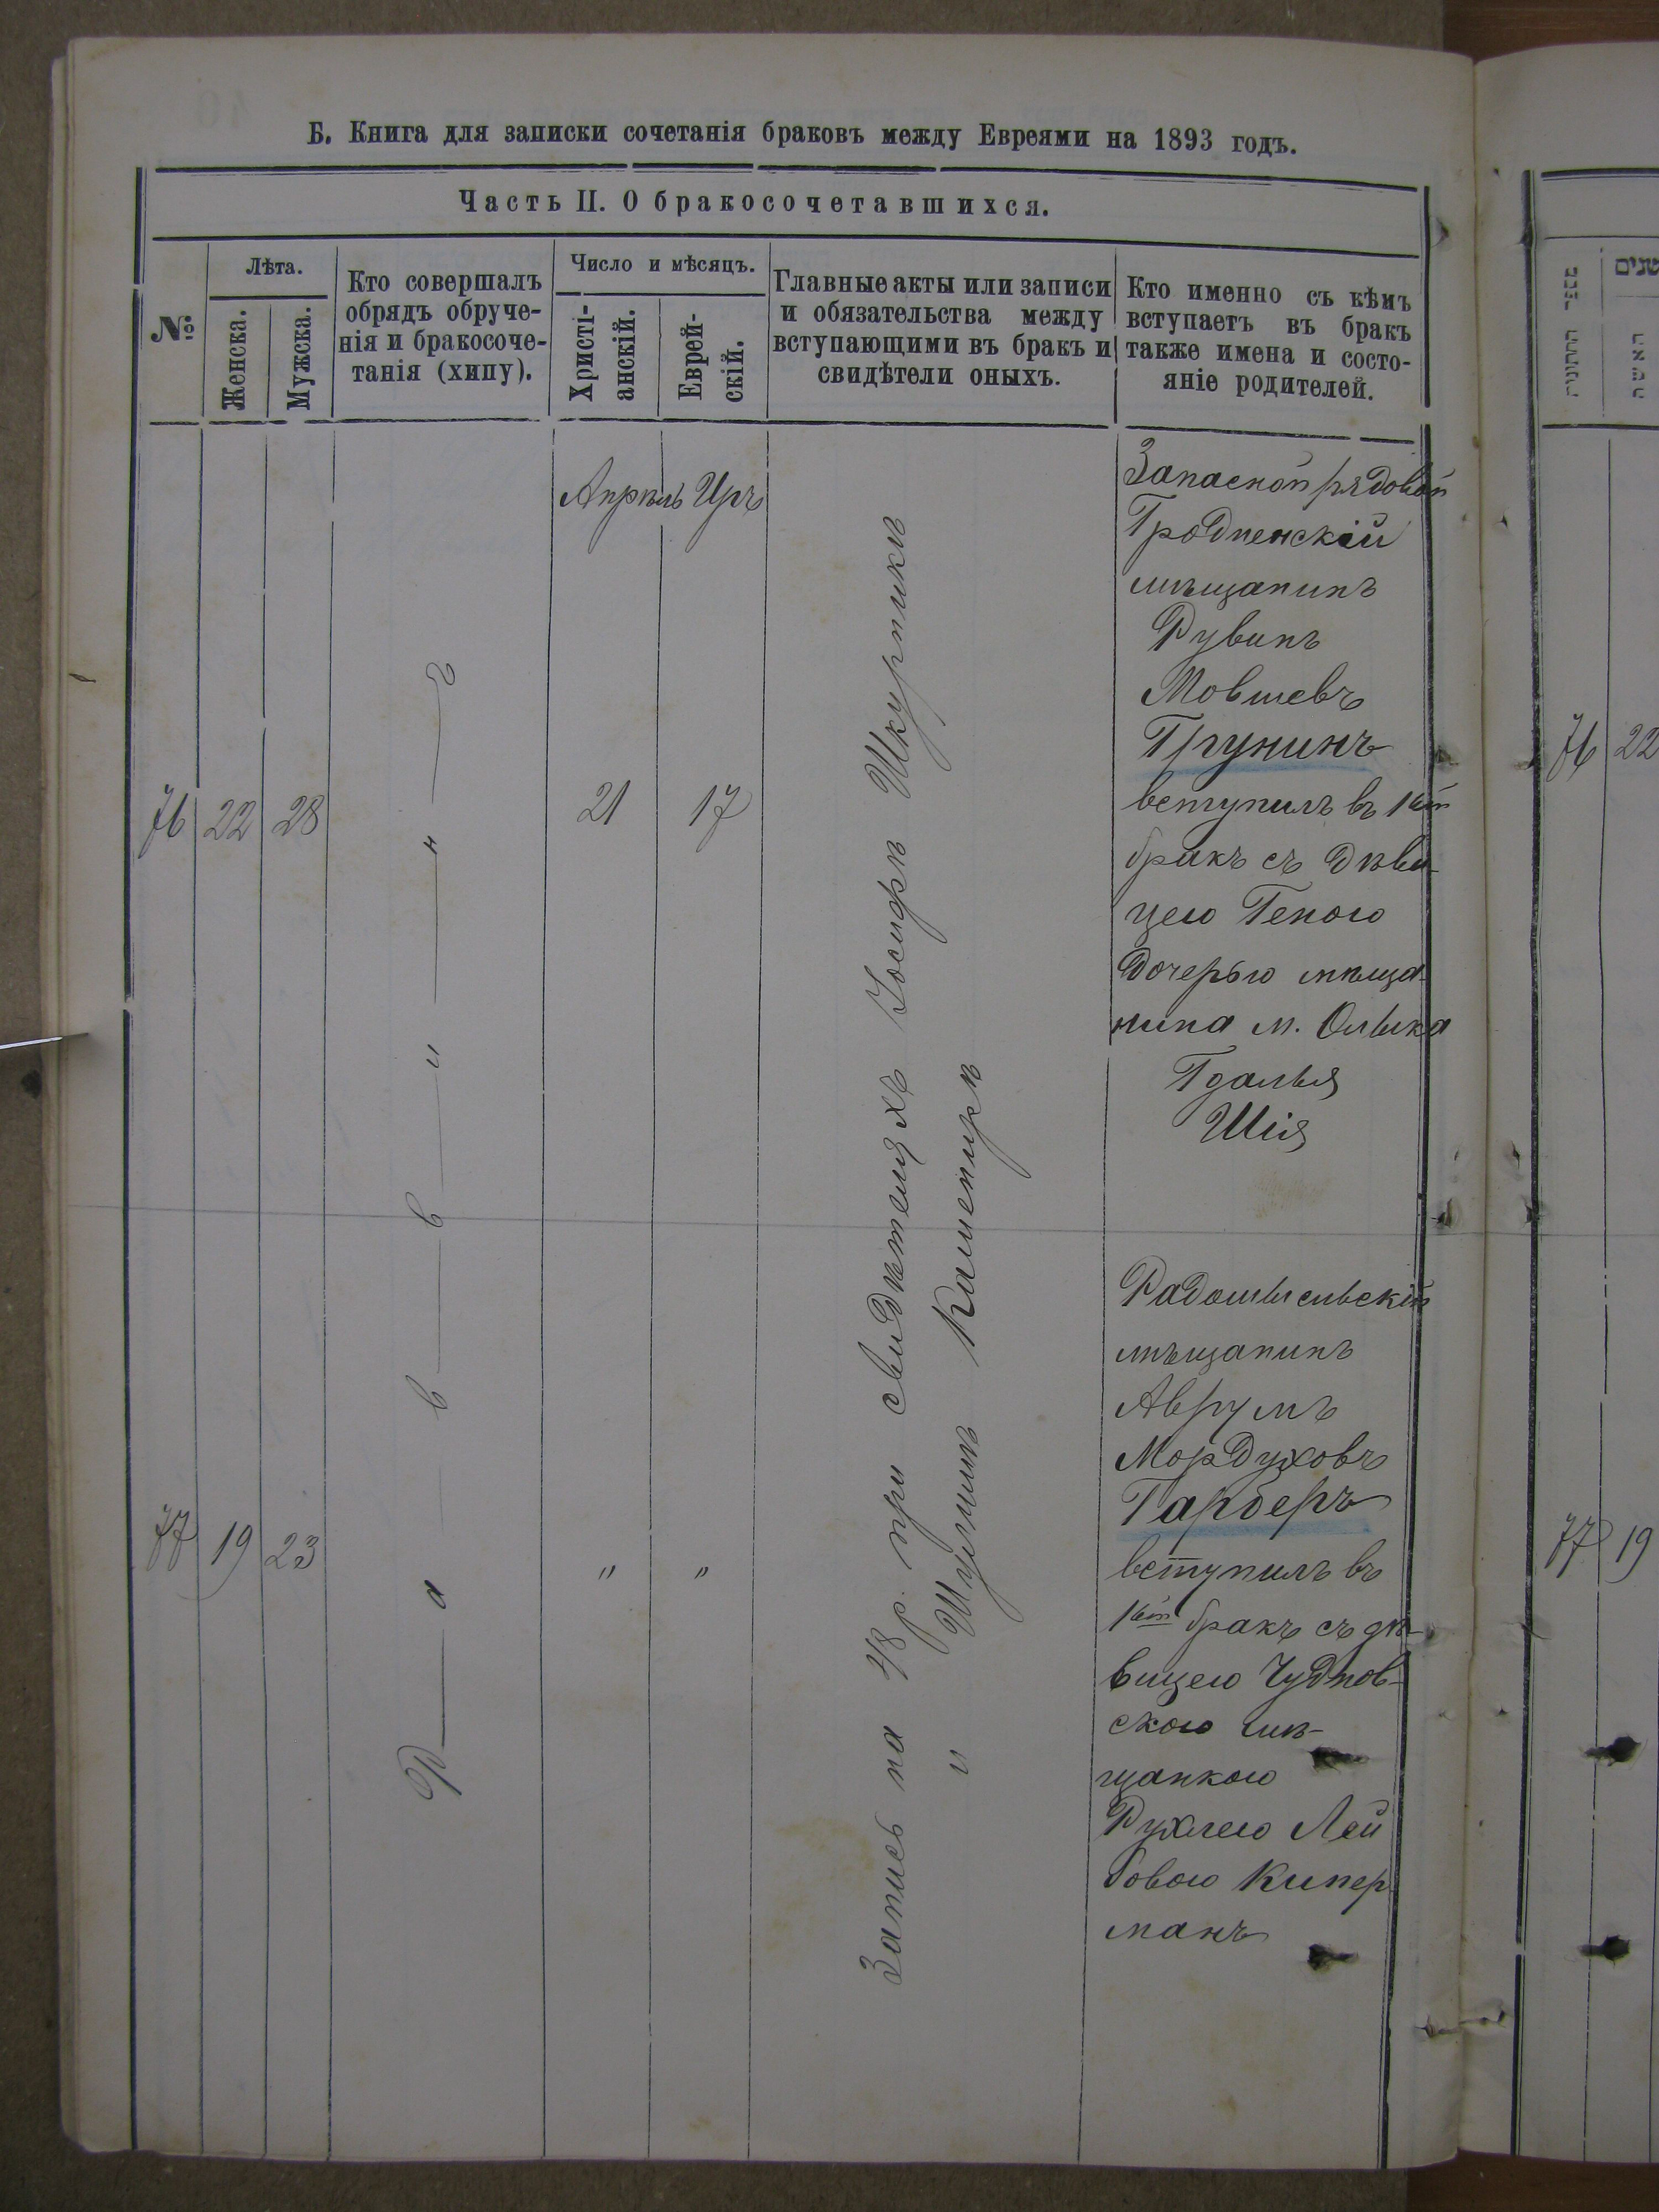 Б. Книга для записки сочетанія браковъ между Евреями на 1893 годъ.
Часть II. О бракосочетавшихся.
№
Лѣта.
Женска.
Мужска.
Кто совершалъ
обрядъ обруче-
нія и бракосоче-
танія (хипу).
Число и мѣсяцъ.
Христі-
анскій.
Еврей-
скій.
Главные акты или записи
и обязательства между
вступающими въ бракъ и
свидѣтели оныхъ.
Кто именно съ кѣмъ
вступаетъ въ бракъ
также имена и состо-
яніе родителей.
Апрѣль Иръ
76 22 28
21 17
Р—а—в—в—и—н—ъ
Запись на 48 р. при свидѣтеляхъ Іосифѣ Шкурникѣ
и Шулимѣ Каменирѣ
Запаской рядовой
Гродненскій
мѣщанинъ
Рувинъ
Мовшевъ
Грунинъ
вступилъ въ 1ый
бракъ съ дѣви-
цею Геною
дочерью мѣща-
нина м. Олыка
Гдалья
Шія
77 19 23
" "
Радомысльскій
мѣщанинъ
Аврумъ
Мордуховъ
Гарберъ
вступилъ въ
1ый бракъ съ дѣ-
вицею Чуднов-
скою мѣ-
щанкою
Рухлею Лей
бовою Кипер
манъ
מספר החתונות
שנים
האשה
76 22
77 19